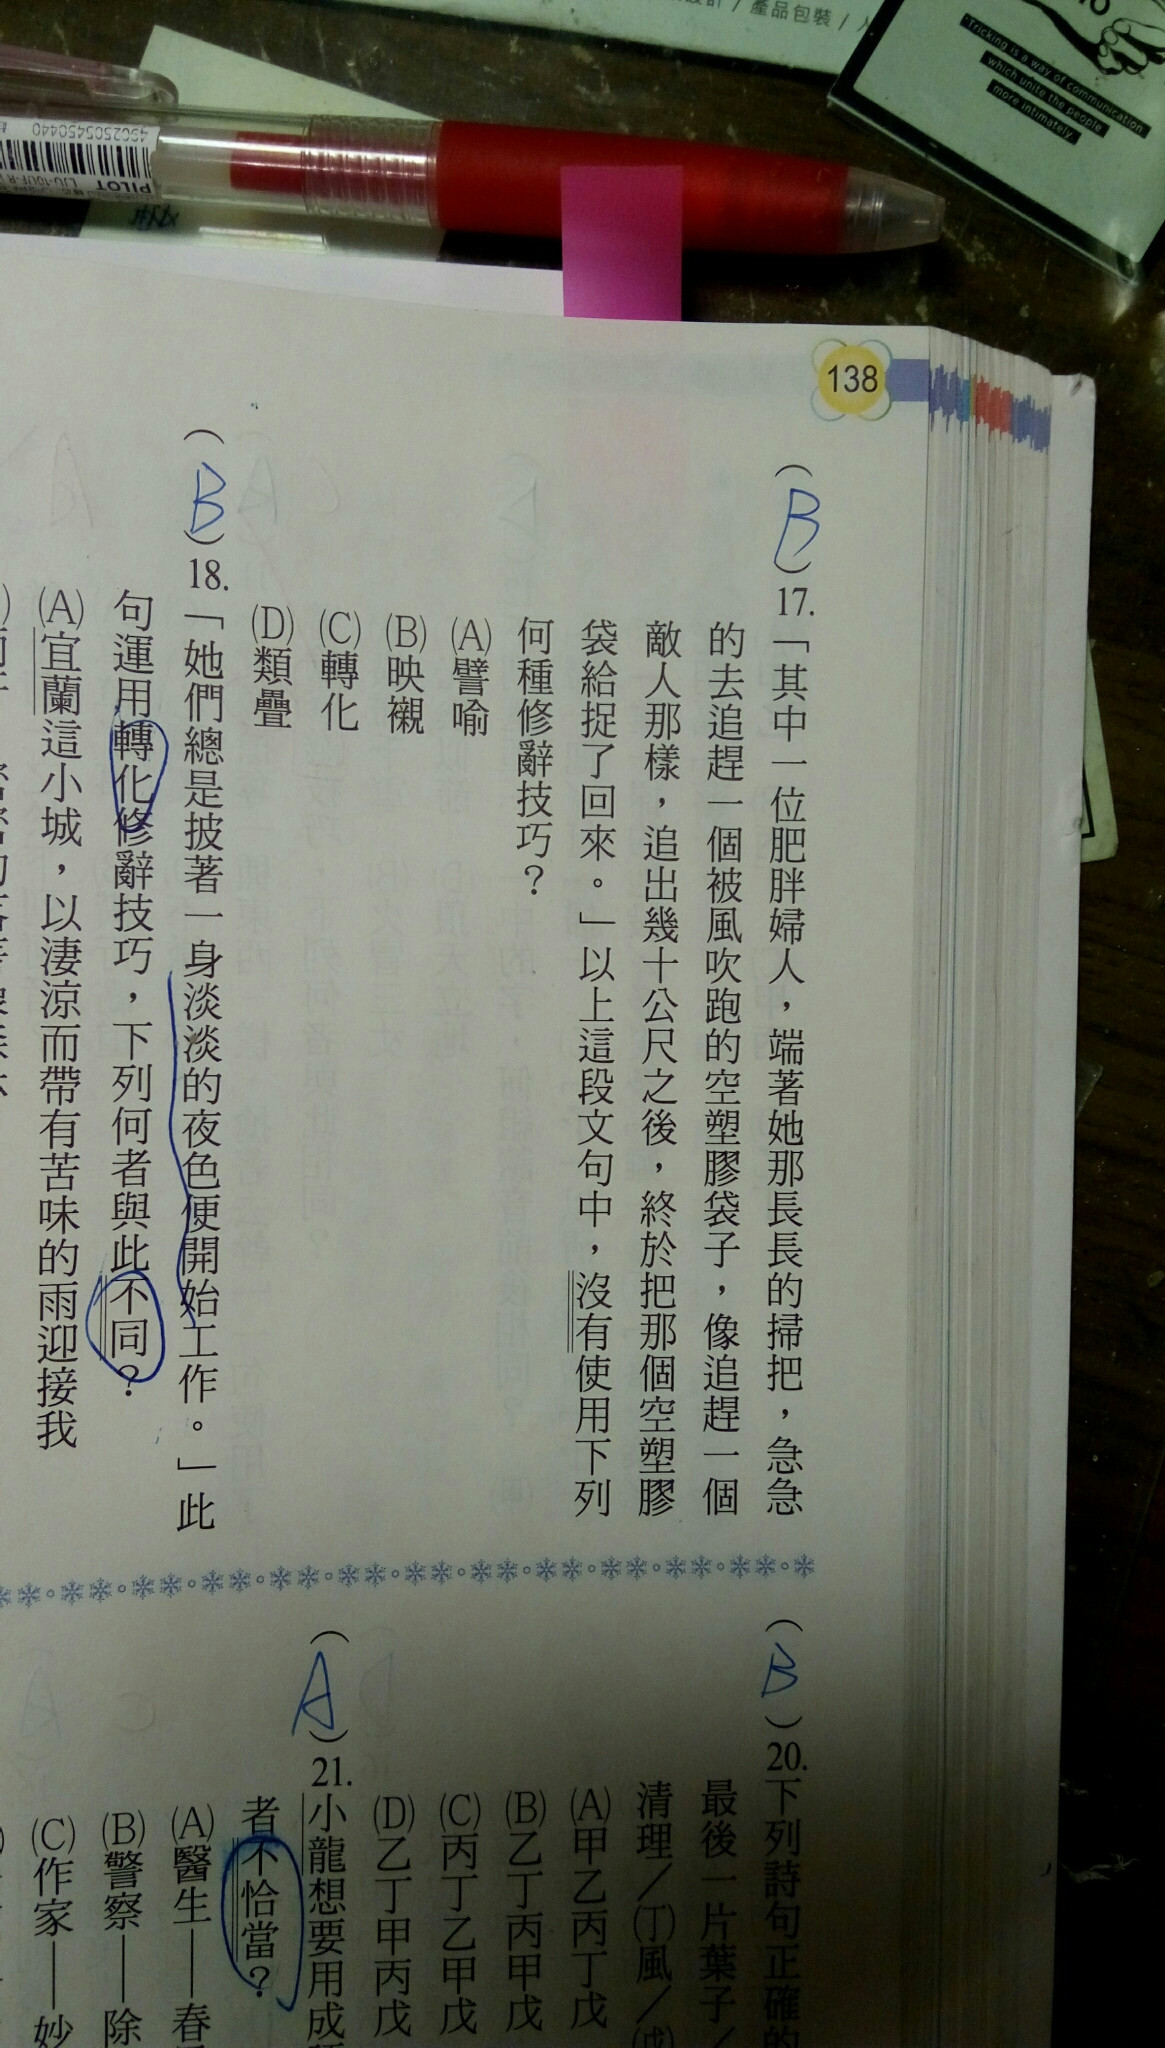 產品包裝 /
"Tricking is a way of communication
which unite the people
more intimately.
4902505450440
PILOT
138
(B)17.「其中一位肥胖婦人，端著她那長長的掃把，急急
的去追趕一個被風吹跑的空塑膠袋子，像追趕一個
敵人那樣，追出幾十公尺之後，終於把那個空塑膠
袋給捉了回來。」以上這段文句中，沒有使用下列
何種修辭技巧？
(A)譬喻
(B)映襯
(C)轉化
(D)類疊
(B)18.「她們總是披著一身淡淡的夜色便開始工作。」此
句運用轉化修辭技巧，下列何者與此不同？
(A)宜蘭這小城，以淒涼而帶有苦味的雨迎接我
(B)20.下列詩句正確的
最後一片葉子／
清理／(丁)風／(戊)
(A)甲乙丙丁戊
(B)乙丁丙甲戊
(C)丙丁乙甲戊
(D)乙丁甲丙戊
(A)21.小龍想要用成
者不恰當？
(A)醫生——春
(B)警察——除
(C)作家——妙